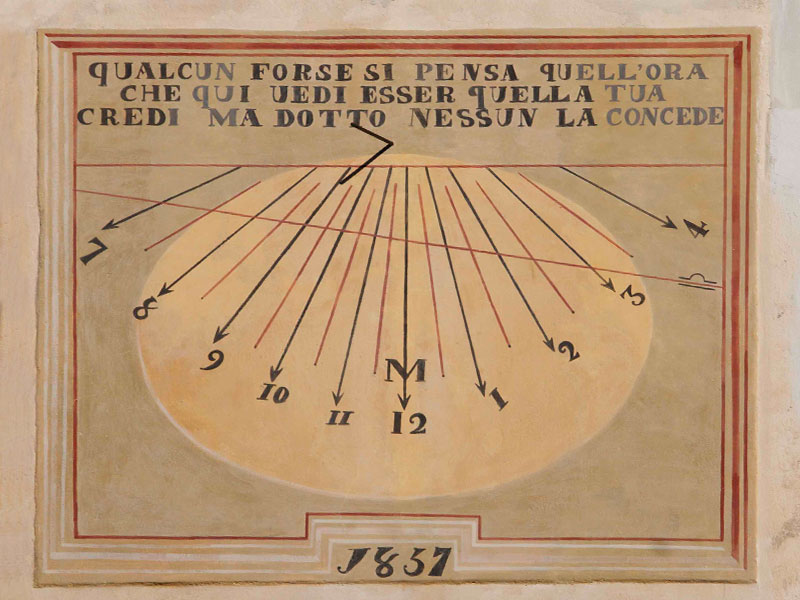 QUALCUN FORSE SI PENSA QUELL'ORA
CHE QUI UEDI ESSER QUELLA TUA
CREDI MA DOTTO NESSUN LA CONCEDE
7
8
9
10
11
M
12
1
2
3
4
♎
1857